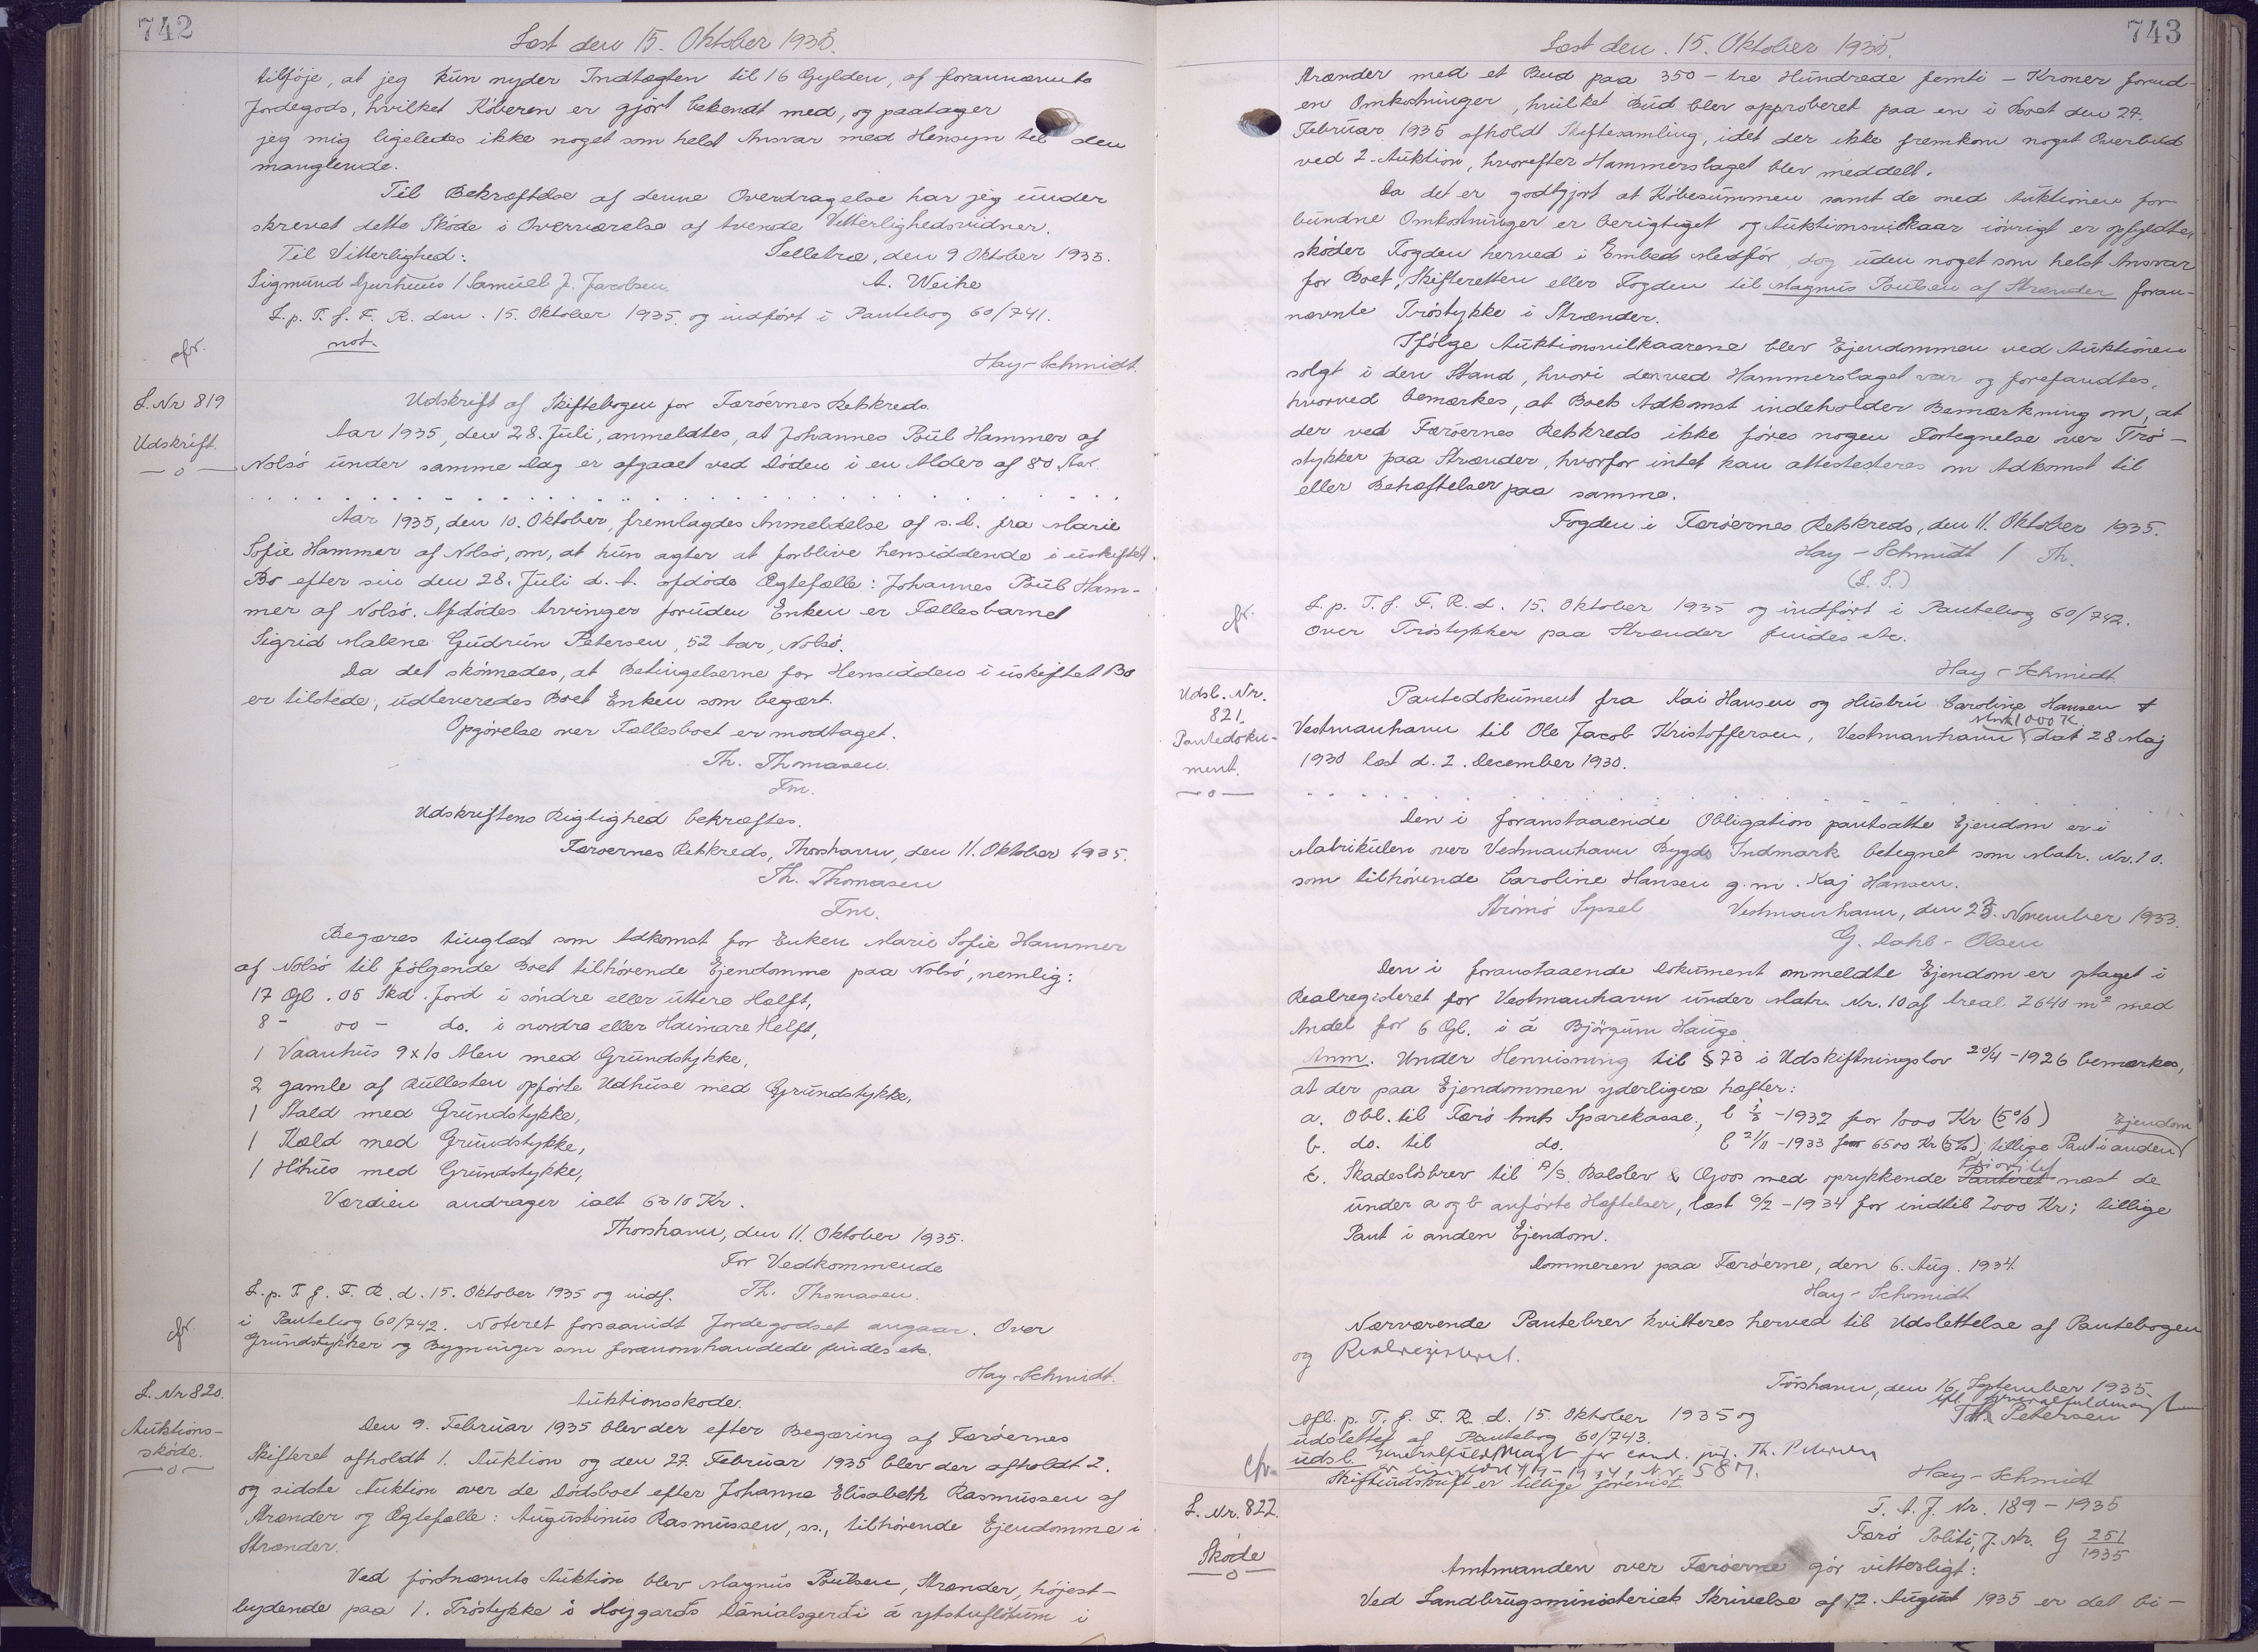 742
Læst den 15. Oktober 1935.
tilføje, at jeg kun nyder Indtægten til 16 Gylden, af forannævnte
Jordegods, hvilket Køberen er gjort bekendt med, og paatager
jeg mig ligeledes ikke noget som helst Ansvar med Hensyn til den
manglende.
Til Bekræftelse af denne Overdragelse har jeg under
skrevet dette Skøde i Overværelse af tvende Vitterlighedsvidner.
Til Vitterlighed: Selletræ, den 9 Oktober 1935.
Sigmund Gurhuus / Samuel J. Jacobsen. A. Weihe
L. p. T. f. F. R. den. 15. Oktober 1935. og indført i Pantebog 60/741.
cfr. not.
Hay-Schmidt.
L. Nr 819
Udskrift.
Udskrift af Skiftebogen for Færøernes Retskreds.
Aar 1935, den 28. Juli, anmeldtes, at Johannes Poul Hammer af
Nolsø under samme Dag er afgaaet ved Døden i en Alder af 80 Aar.
Aar 1935, den 10. Oktober, fremlagdes Anmeldelse af s. D. fra Marie
Sofie Hammer af Nolsø, om, at hun agter at forblive hensiddende i uskiftet
Bo efter sin den 28. Juli d. A. afdøde Ægtefælle: Johannes Poul Ham-
mer af Nolsø. Afdødes Arvinger foruden Enken er Fællesbarnet
Sigrid Malene Gudrun Petersen, 52 Aar, Nolsø.
Da det skønnedes, at Betingelserne for Hensidden i uskiftet Bo
er tilstede, udleveredes Boet Enken som begært.
Opgørelse over Fællesboet er modtaget.
Th. Thomasen.
Fm.
Udskriftens Rigtighed bekræftes.
Færøernes Retskreds, Thorshavn, den 11. Oktober 1935.
Th. Thomasen
Fm.
Begæres tinglæst som Adkomst for Enken Marie Sofie Hammer
af Nolsø til følgende Boet tilhørende Ejendomme paa Nolsø, nemlig:
17 Gl. 05 Skd. Jord i søndre eller uttere Halft,
8 - 00 - do. i nordre eller Haimare Helft,
1 Vaanhus 9 x 10 Alen med Grundstykke,
2 gamle af Rullesten opførte Udhuse med Grundstykke,
1 Stald med Grundstykke,
1 Kæld med Grundstykke,
1 Høhus med Grundstykke,
Værdien andrager ialt 6310 Kr.
Thorshavn, den 11. Oktober 1935.
For Vedkommende
L. p. T. f. F. R. d. 15. Oktober 1935 og indf. Th. Thomasen.
cfr i Pantebog 60/742. Noteret forsaavidt Jordegodset angaar. Over
Grundstykker og Bygninger som foranomhandlede findes etc.
Hay-Schmidt.
L. Nr 820.
Auktions-
skøde.
Auktionsskøde.
Den 9. Februar 1935 blev der efter Begæring af Færøernes
Skifteret afholdt 1. Auktion og den 27. Februar 1935 blev der afholdt 2.
og sidste Auktion over de Dødsboet efter Johanne Elisabeth Rasmussen af
Strænder og Ægtefælle: Augustinus Rasmussen, ss., tilhørende Ejendomme i
Strænder.
Ved førstnævnte Auktion blev Magnus Poulsen, Strænder, højest-
bydende paa 1. Trøstykke i Hojgarðs Dánialsgerði á rytstuflötum i
743
Læst den. 15. Oktober 1935.
Strænder med et Bud paa 350 - tre Hundrede femti - Kroner forud-
en Omkostninger, hvilket Bud blev approberet paa en i Boet den 27.
Februar 1935 afholdt Skiftesamling, idet der ikke fremkom noget Overbud
ved 2. Auktion, hvorefter Hammerslaget blev meddelt.
Da det er godtgjort at Købesummen samt de med Auktionen for-
bundne Omkostninger er berigtiget og Auktionsvilkaar iøvrigt er opfyldte,
skøder Fogden herved i Embeds Medfør, dog uden noget som helst Ansvar
for Boet, Skifteretten eller Fogden til Magnus Poulsen af Strænder foran-
nævnte Trøstykke i Strænder.
Ifølge Auktionsvilkaarene blev Ejendommen ved Auktionen
solgt i den Stand, hvori den ved Hammerslaget var og forefandtes,
hvorved bemærkes, at Boets Adkomst indeholder Bemærkning om, at
der ved Færøernes Retskreds ikke føres nogen Fortegnelse over Trø-
stykker paa Strænder, hvorfor intet kan attesteres om Adkomst til
eller Behæftelser paa samme.
Fogden i Færøernes Retskreds, den 11. Oktober 1935.
Hay-Schmidt / Th.
(L. S.)
cfr. L. p. T. f. F. R. d. 15. Oktober 1935 og indført i Pantebog 60/742.
Over Trøstykker paa Strænder findes etc.
Hay-Schmidt.
Udsl. Nr.
821.
Pantedoku-
ment.
Pantedokument fra Kai Hansen og Hustru Caroline Hansen
1000 K.
Vestmanhavn til Ole Jacob Kristoffersen, Vestmanhavn, dat 28 Maj
1930 læst d. 2. December 1930.
Den i foranstaaende Obligation pantsatte Ejendom er i
Matrikulen over Vestmanhavn Bygds Indmark betegnet som Matr. Nr. 10.
som tilhørende Caroline Hansen g. m. Kaj Hansen.
Strømø Syssel Vestmanhavn, den 25. November 1933.
G. Dahl-Olsen
Den i foranstaaende Dokument ommeldte Ejendom er optaget i
Realregisteret for Vestmanhavn under Matr. Nr. 10 af Areal 2640 m² med
Andel for 6 Gl. i á Bjørgum Hauge.
Anm. Under Henvisning til § 73 i Udskiftningslov 20/4-1926 bemærkes,
at der paa Ejendommen yderligere hæfter:
a. Obl. til Færø Amts Sparekasse, l -1932 for 1000 Kr (5%)
Ejendom
b. do. til do. l 21/11-1933 for 6500 Kr (5%); tillige Pant i anden
Prioritet
c. Skadesløsbrev til A/S. Balslev & Goos med oprykkende Panteret næst de
under a og b anførte Hæftelser, læst 6/2-1934 for indtil 2000 Kr; tillige
Pant i anden Ejendom.
Dommeren paa Færøerne, den 6. Aug. 1934.
Hay-Schmidt
Nærværende Pantebrev kvitteres herved til Udslettelse af Pantebogen
og Realregisteret.
Tórshavn, den 16. September 1935.
Th. Petersen
Afl. p. T. f. F. R. d. 15. Oktober 1935 og
udslettet af Pantebog 60/743.
cfr. udsl. Generalfuldmagt for cand. jur. Th. Petersen
Nr. 587.
Skifteudskrift er tillige forevist.
Hay-Schmidt
L. Nr. 822.
Skøde
F. A. J. Nr. 189-1935
Færø Politi, J. Nr. G 251/1935
Amtmanden over Færøerne gør vitterligt:
Ved Landbrugsministeriets Skrivelse af 12. August 1935 er det bi-